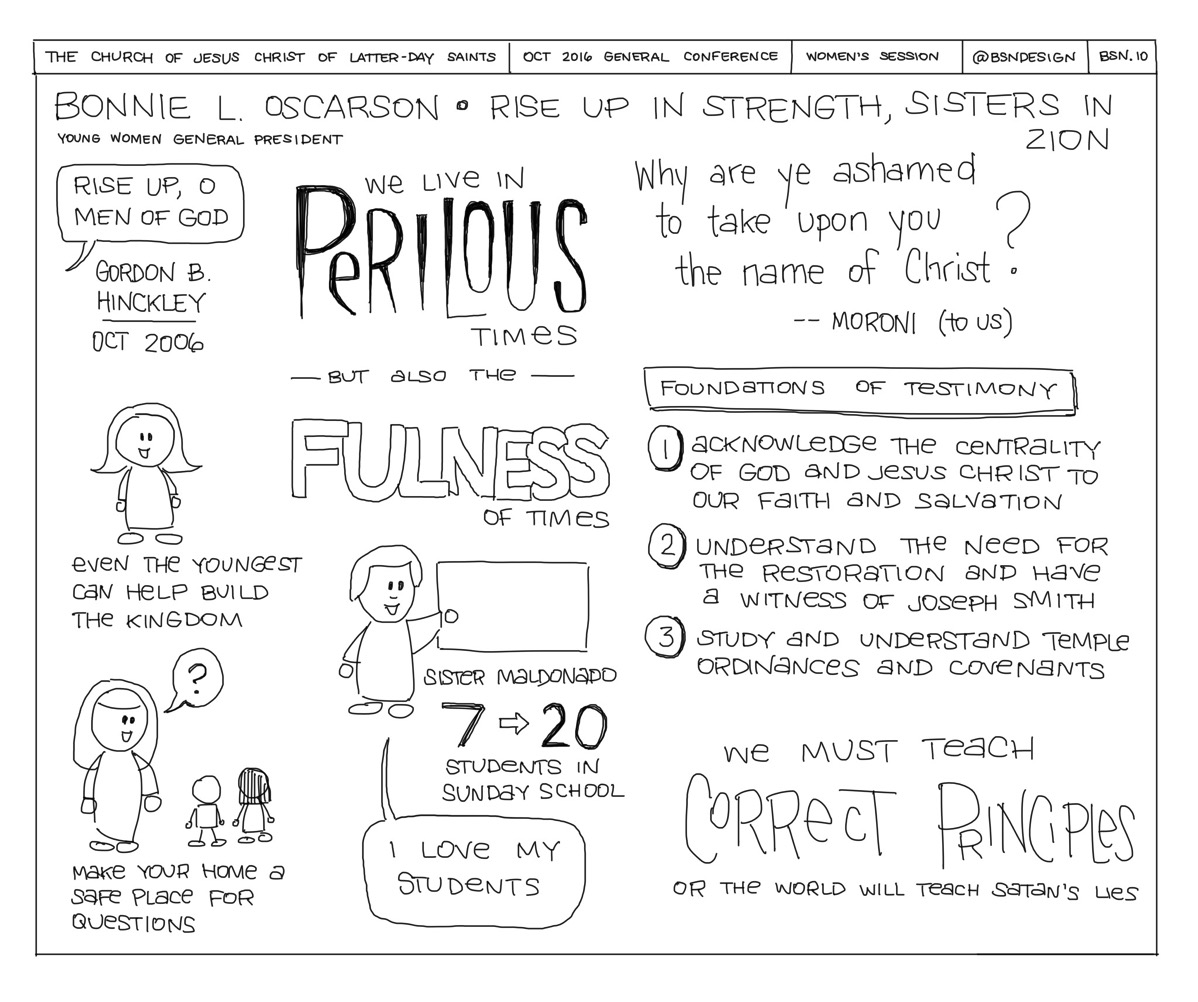 THE CHURCH OF JESUS CHRIST OF LATTER-DAY SAINTS
OCT 2016 GENERAL CONFERENCE
WOMEN'S SESSION
@BSNDESIGN
BSN.10
BONNIE L. OSCARSON • RISE UP IN STRENGTH, SISTERS IN
ZION
YOUNG WOMEN GENERAL PRESIDENT
RISE UP, O
MEN OF GOD
GORDON B.
HINCKLEY
OCT 2006
WE LIVE IN
PERILOUS
TIMES
— BUT ALSO THE —
FULNESS
OF TIMES
Why are ye ashamed
to take upon you
the name of Christ ?
-- MORONI (to US)
EVEN THE YOUNGEST
CAN HELP BUILD
THE KINGDOM
?
MAKE YOUR HOME A
SAFE PLACE FOR
QUESTIONS
SISTER MALDONADO
7 ⇨ 20
STUDENTS IN
SUNDAY SCHOOL
I LOVE MY
STUDENTS
FOUNDATIONS OF TESTIMONY
1 ACKNOWLEDGE THE CENTRALITY
OF GOD AND JESUS CHRIST TO
OUR FAITH AND SALVATION
2 UNDERSTAND THE NEED FOR
THE RESTORATION AND HAVE
A WITNESS OF JOSEPH SMITH
3 STUDY AND UNDERSTAND TEMPLE
ORDINANCES AND COVENANTS
WE MUST TEACH
CORRECT PRINCIPLES
OR THE WORLD WILL TEACH SATAN'S LIES